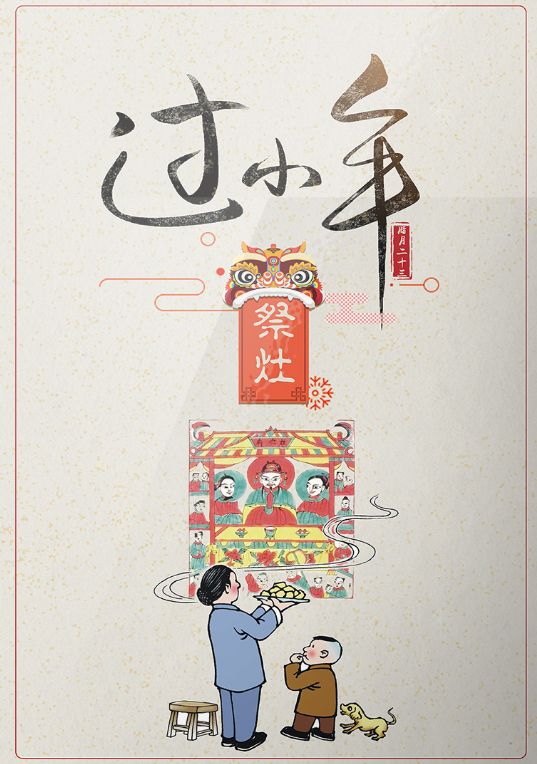 过小年
腊月二十三
祭灶